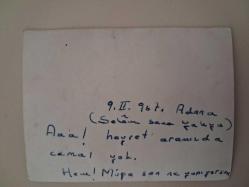 9.II.967. Adana
(Selâm sana Yahya)
Aaa! hayret aramızda
cemal yok.
Hem! Müpa sen ne yapıyorsun